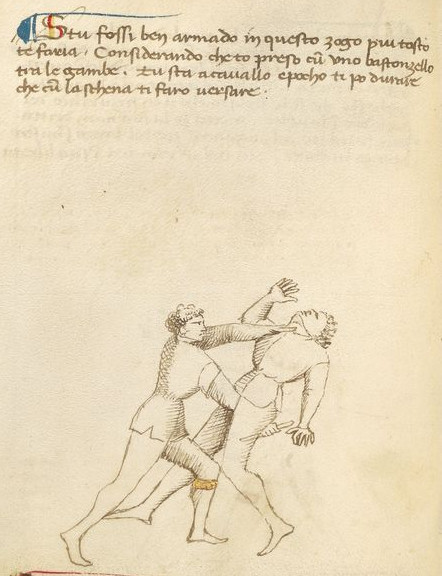 Stu fossi ben armado in questo zogo piu tosto
te faria. Considerando che to preso cū uno bastonzello
tra le gambe. Tu sta acavallo epocho ti po durare
che cū la schena ti faro versare.